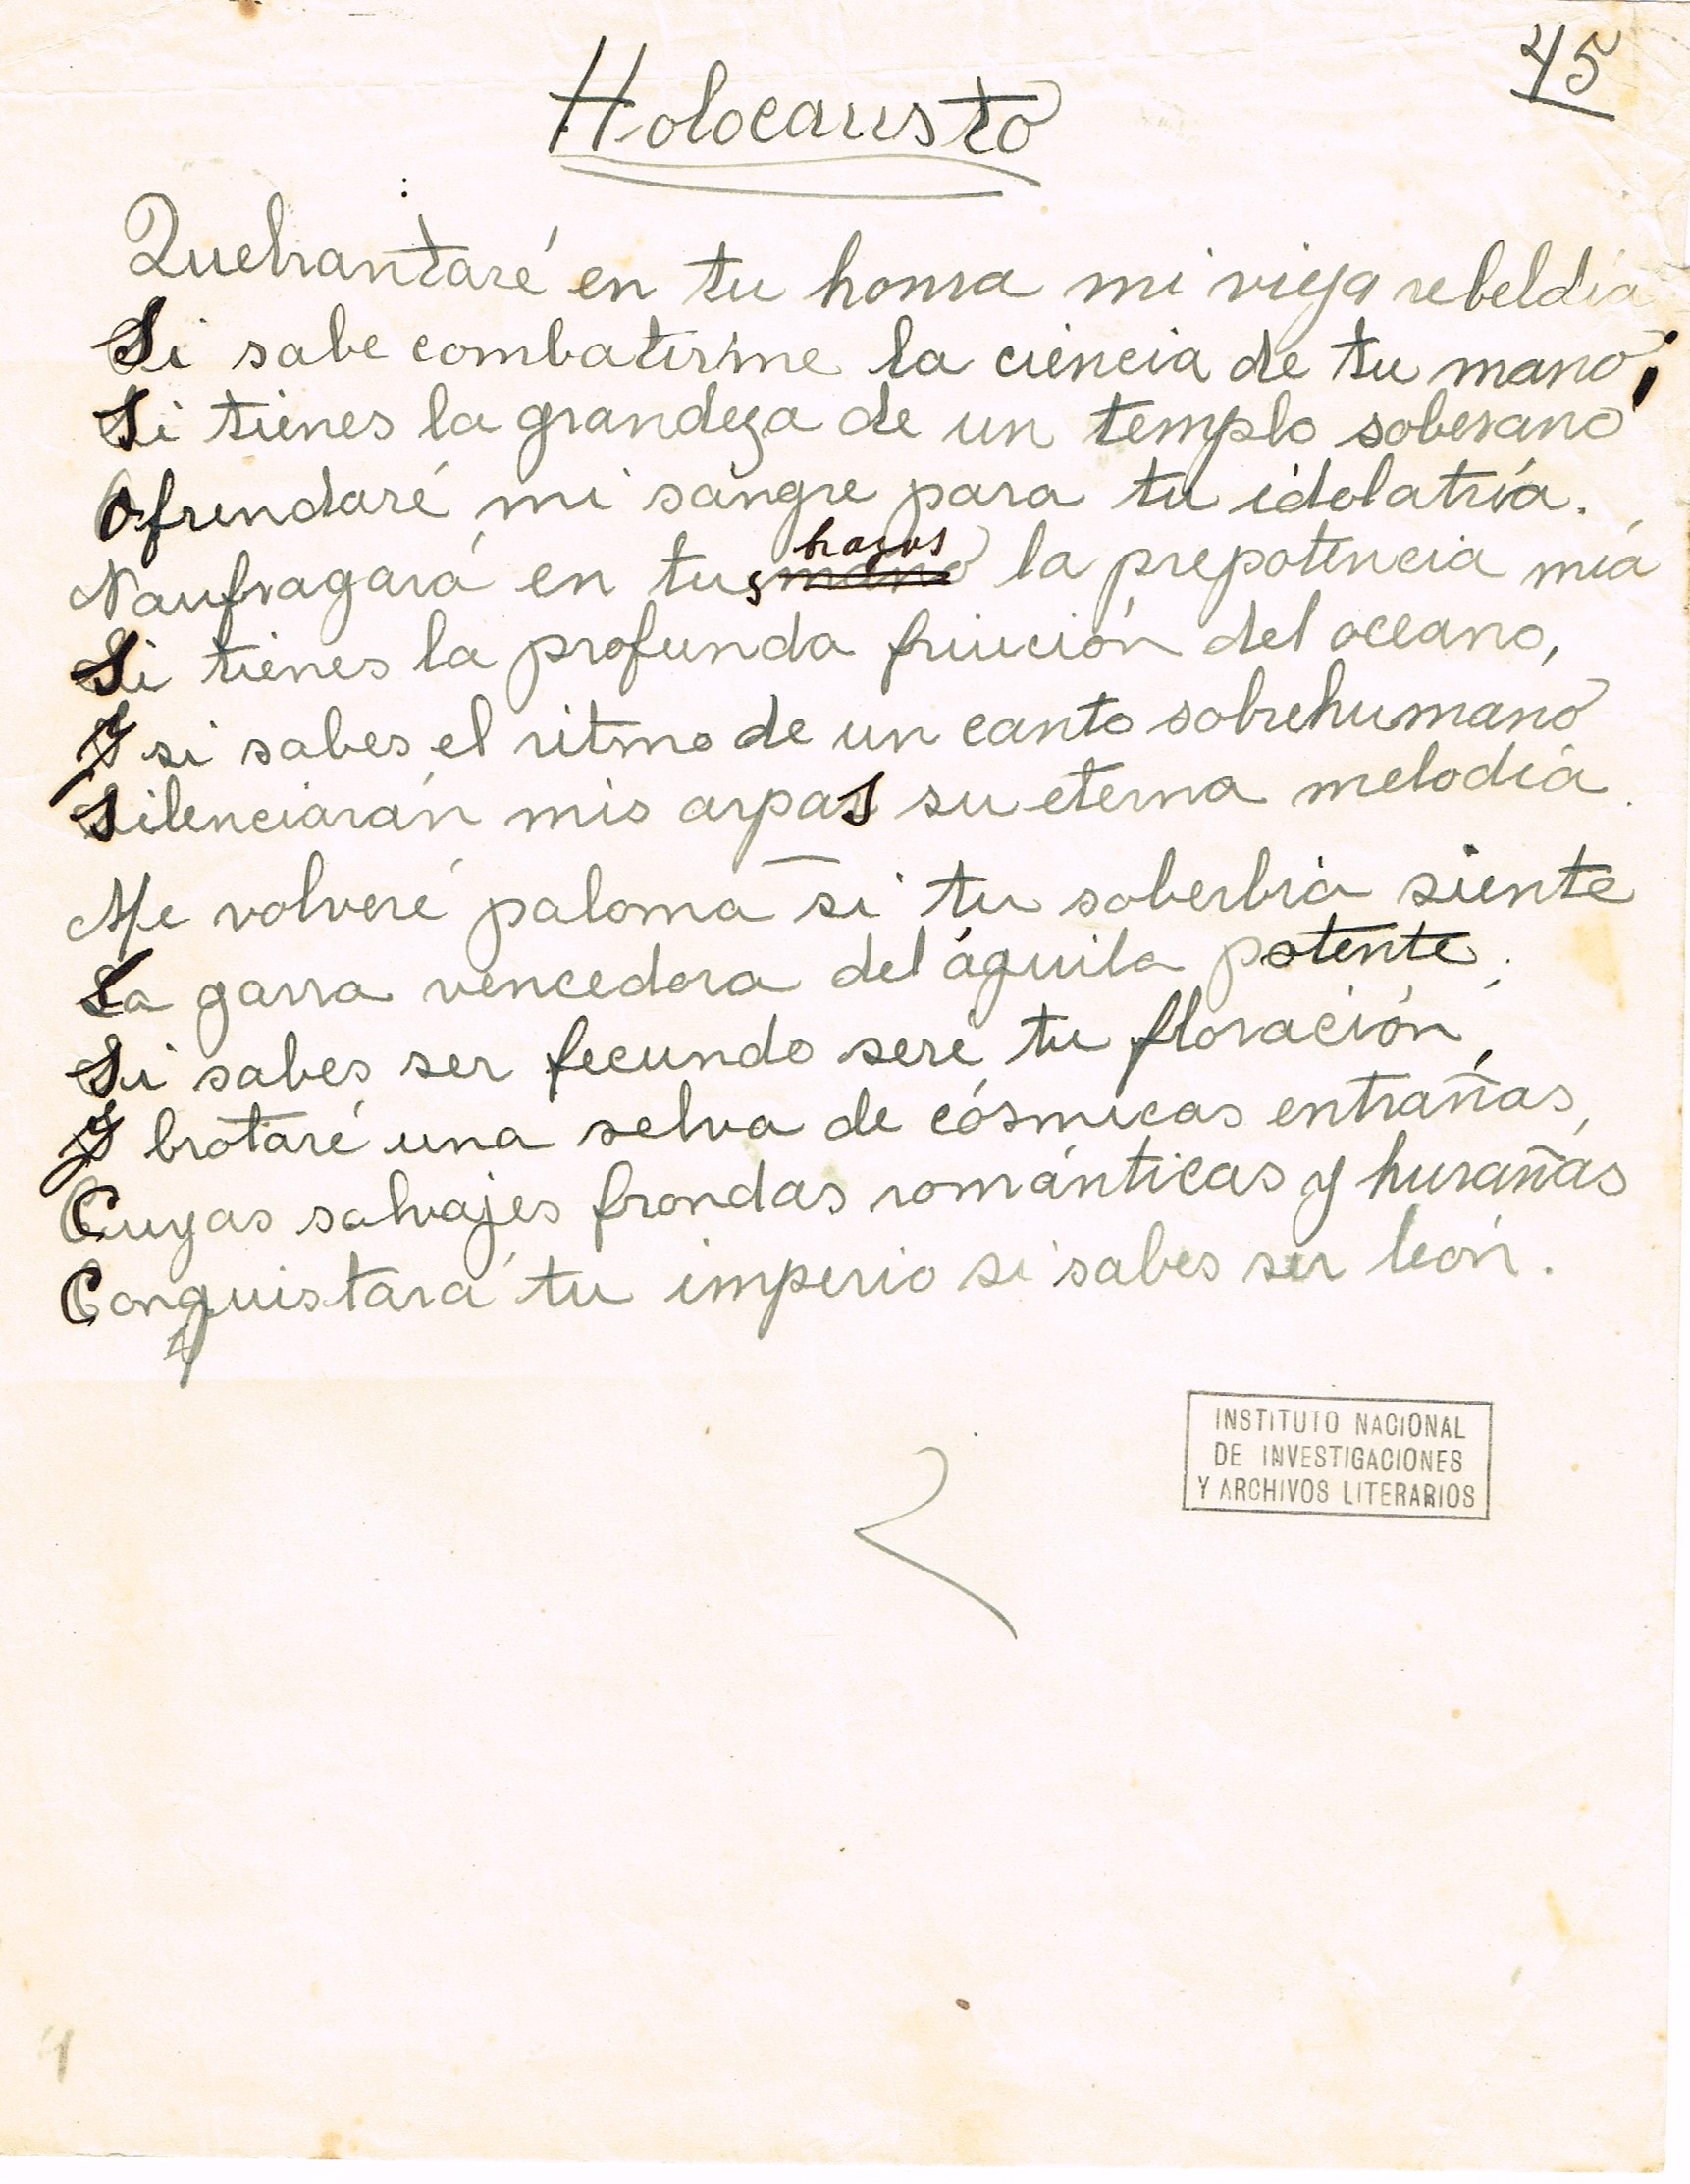 45
Holocausto
Quebrantaré en tu honra mi vieja rebeldía
Si sabe combatirme la ciencia de tu mano;
Si tienes la grandeza de un templo soberano
Ofrendaré mi sangre para tu idolatría.
brazos
Naufragará en tus mano la prepotencia mía
Si tienes la profunda fruición del oceano,
Y si sabes el ritmo de un canto sobrehumano
Silenciarán mis arpas su eterna melodía.
Me volveré paloma si tu soberbia siente
La garra vencedora del águila potente;
Si sabes ser fecundo seré tu floración,
Y brotaré una selva de cósmicas entrañas,
Cuyas salvajes frondas románticas y hurañas
Conquistará tu imperio si sabes ser león.
INSTITUTO NACIONAL
DE INVESTIGACIONES
Y ARCHIVOS LITERARIOS